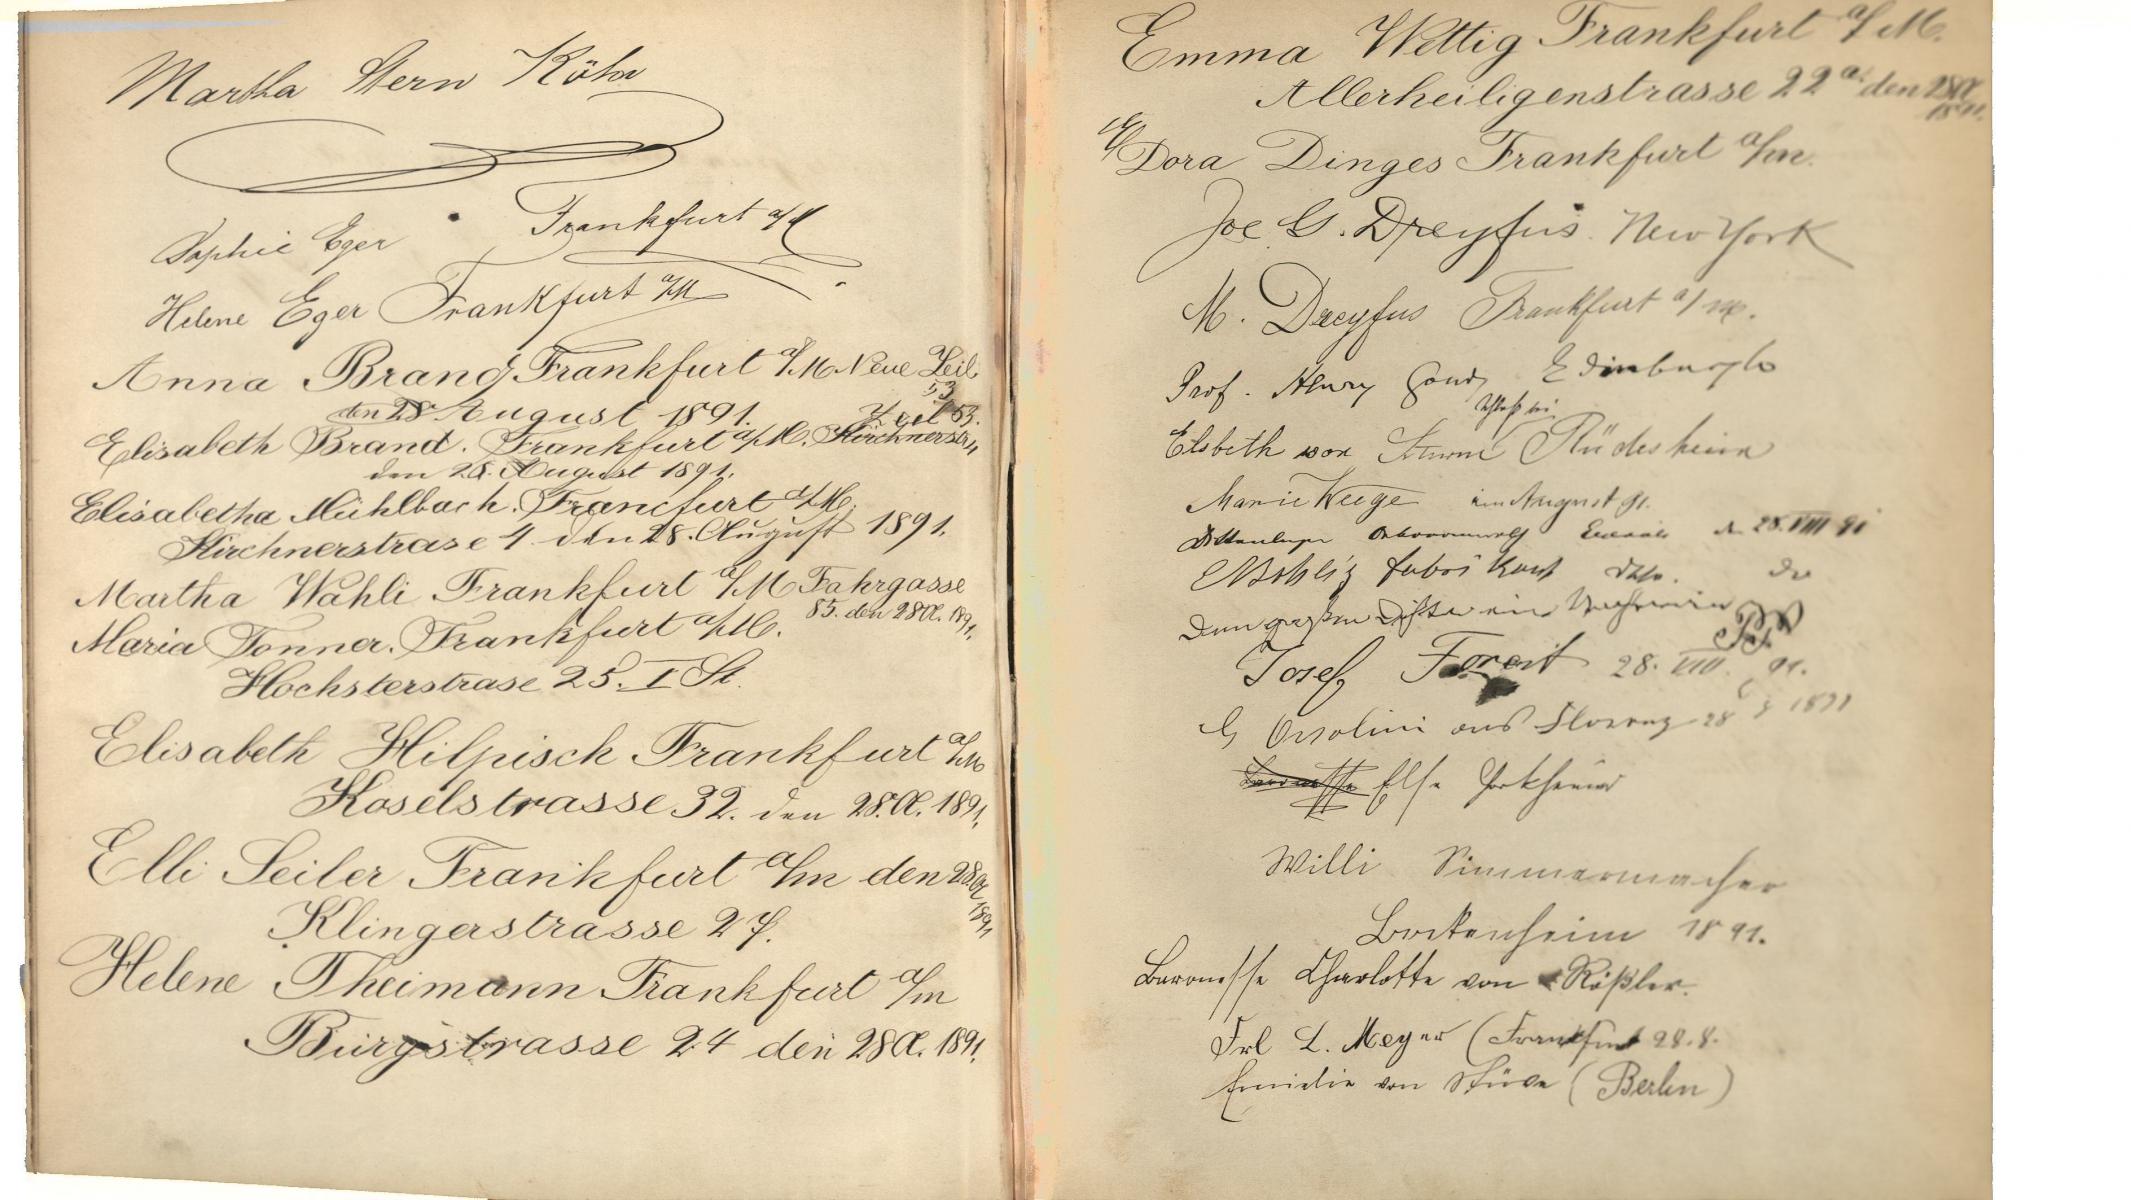 Martha Stern Köln
Sophie Eger Frankfurt a/M
Helene Eger Frankfurt a/M
Anna Brand Frankfurt a/M Neue Zeil
53
den 28 August 1891. Zeil 53.
Elisabeth Brand. Frankfurt a/M. Kirchnerstr.
den 28. August 1891.
Elisabetha Mühlbach. Francfurt a/M.
Kirchnerstrase 4 den 28. August 1891.
Martha Wahli Frankfurt a/M Fahrgasse
85. den 28 1891.
Maria Tonner. Frankfurt a/M.
Hochsterstrase 25. I St.
Elisabeth Hilpisch Frankfurt a/M
Koselstrasse 32. den 28. 1891.
Elli Seiler Frankfurt a/m den 28
1891
Klingerstrasse 27.
Helene Theimann Frankfurt a/m
Burgstrasse 24 den 28 1891.
Emma Wettig Frankfurt a/M.
Allerheiligenstrasse 22 a. den 28
1891.
Dora Dinges Frankfurt a/m.
Joe G. Dreyfus. New York
M. Dreyfus Frankfurt a/m.
Prof. Henry Edinburgh
Elsbeth von Rüdesheim
Marie Weege im August 91.
28. VIII 91
Josef 28. VIII. 91.
Orsolini aus Florenz 28 8 1891
Baronesse Else
Willi Simmermacher
Bockenheim 1891.
Baronesse Charlotte von Rößler.
Frl L. Meyer (Frankfurt 28.8.
Emilie von (Berlin)